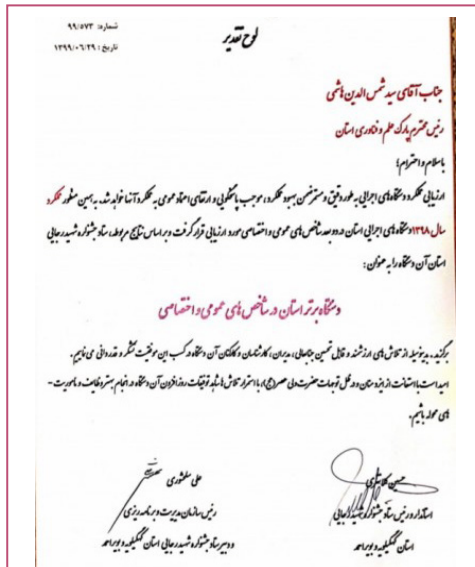 شماره: ۹۹/۵۷۳
لوح تقدیر
تاریخ: ۱۳۹۹/۰۶/۲۹
جناب آقای سید شمس الدین هاشمی
رئیس محترم پارک علم و فناوری استان
باسلام و احترام؛
ارزیابی عملکرد دستگاه‌های اجرایی به طور دقیق و مستمر ضمن بهبود عملکرد، موجب پاسخگویی و ارتقای اعتماد عمومی به عملکرد آنها خواهد شد. به همین منظور عملکرد
سال ۱۳۹۸ دستگاه‌های اجرایی استان در دو بعد شاخص های عمومی و اختصاصی مورد ارزیابی قرار گرفت و بر اساس نتایج مربوطه، ستاد جشنواره شهید رجایی
استان آن دستگاه را به عنوان:
دستگاه برتر استان در شاخص های عمومی و اختصاصی
برگزید. بدینوسیله از تلاش های ارزشمند و قابل تحسین جنابعالی، مدیران، کارشناسان و کارکنان آن دستگاه در کسب این موفقیت تشکر و قدردانی می نماییم.
امید است با استعانت از ایزد منان و در ظل توجهات حضرت ولی عصر (عج)، با استمرار تلاش ها شاهد توفیقات روز افزون آن دستگاه در انجام بهتر وظایف و ماموریت-
های محوله باشیم.
حسین کلانتری
استاندار و رئیس ستاد جشنواره شهید رجایی
استان کهگیلویه و بویراحمد
علی
رئیس سازمان مدیریت و برنامه ریزی
و دبیر ستاد جشنواره شهید رجایی استان کهگیلویه و بویراحمد